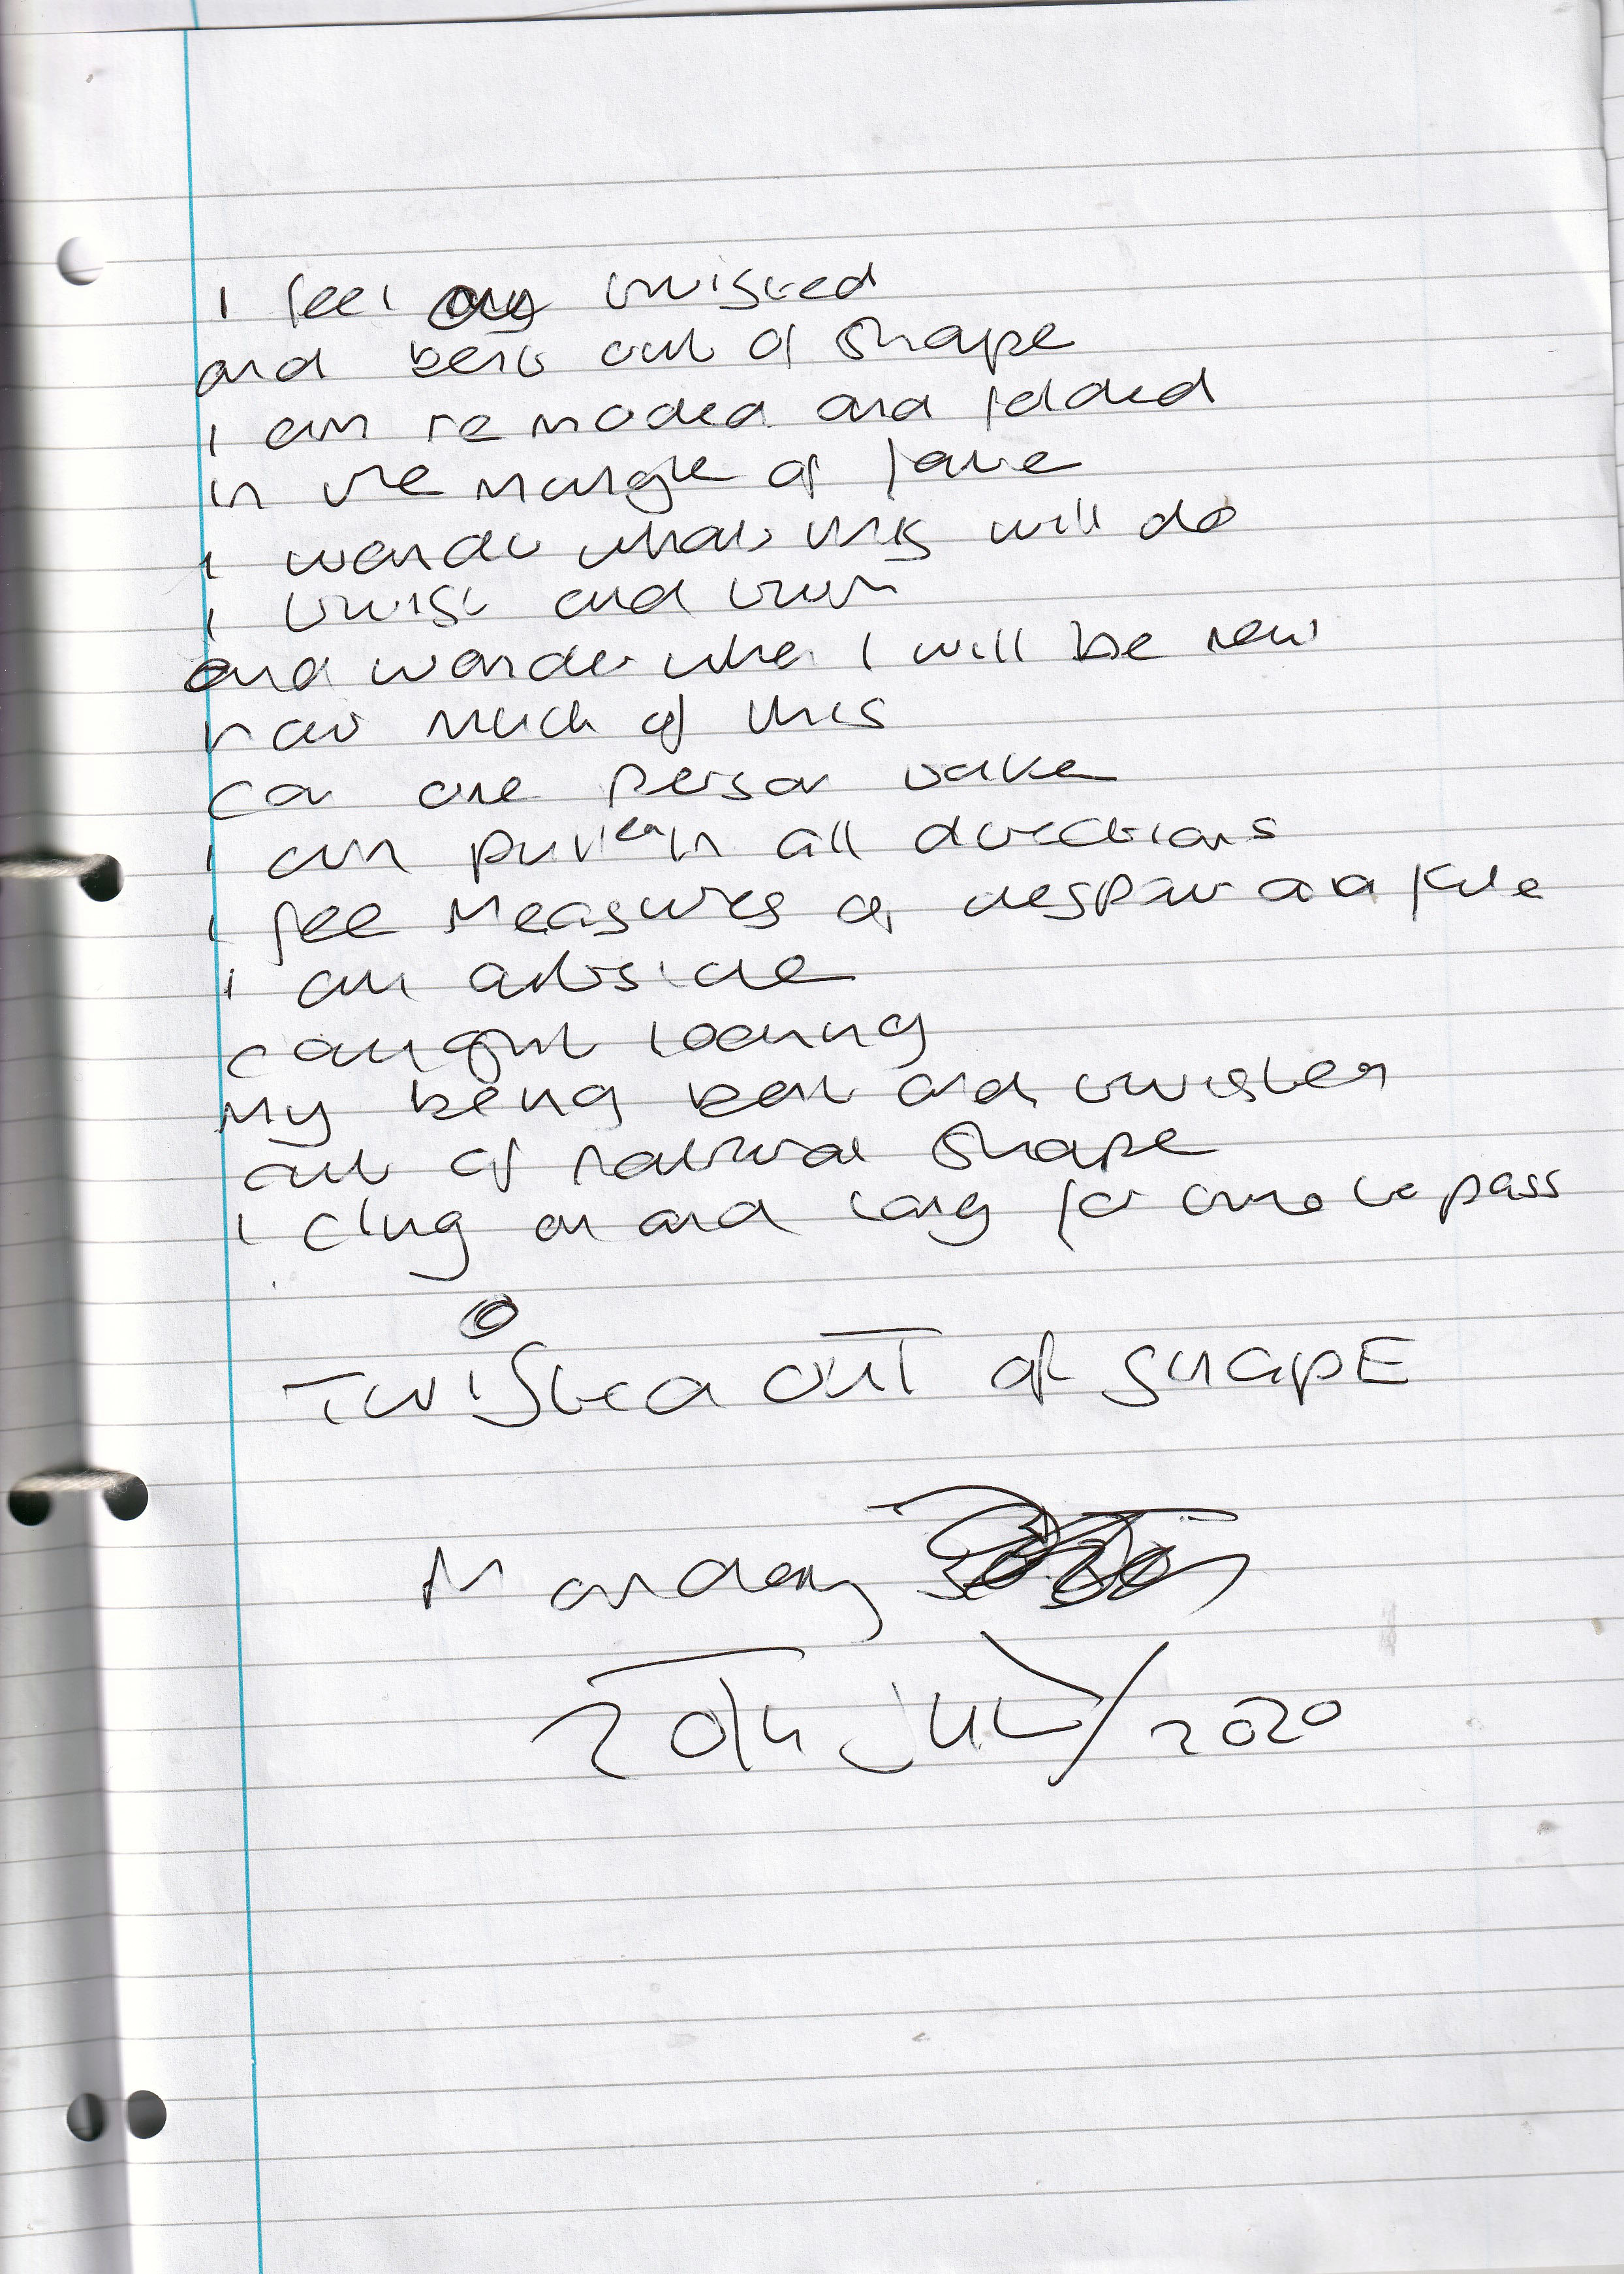 I feel twisted
and bent out of shape
I am remoded and folded
in the mangle of fate
I wonder what this will do
I twist and turn
and wonder when I will be new
how much of this
can one person take
I am pulled in all directions
I feel measures of despair and
I am outside
caught looking
My being bent and twisted
out of natural shape
I cling on and long for time to pass
Twisted OUT of SHAPE
Monday
20th July 2020